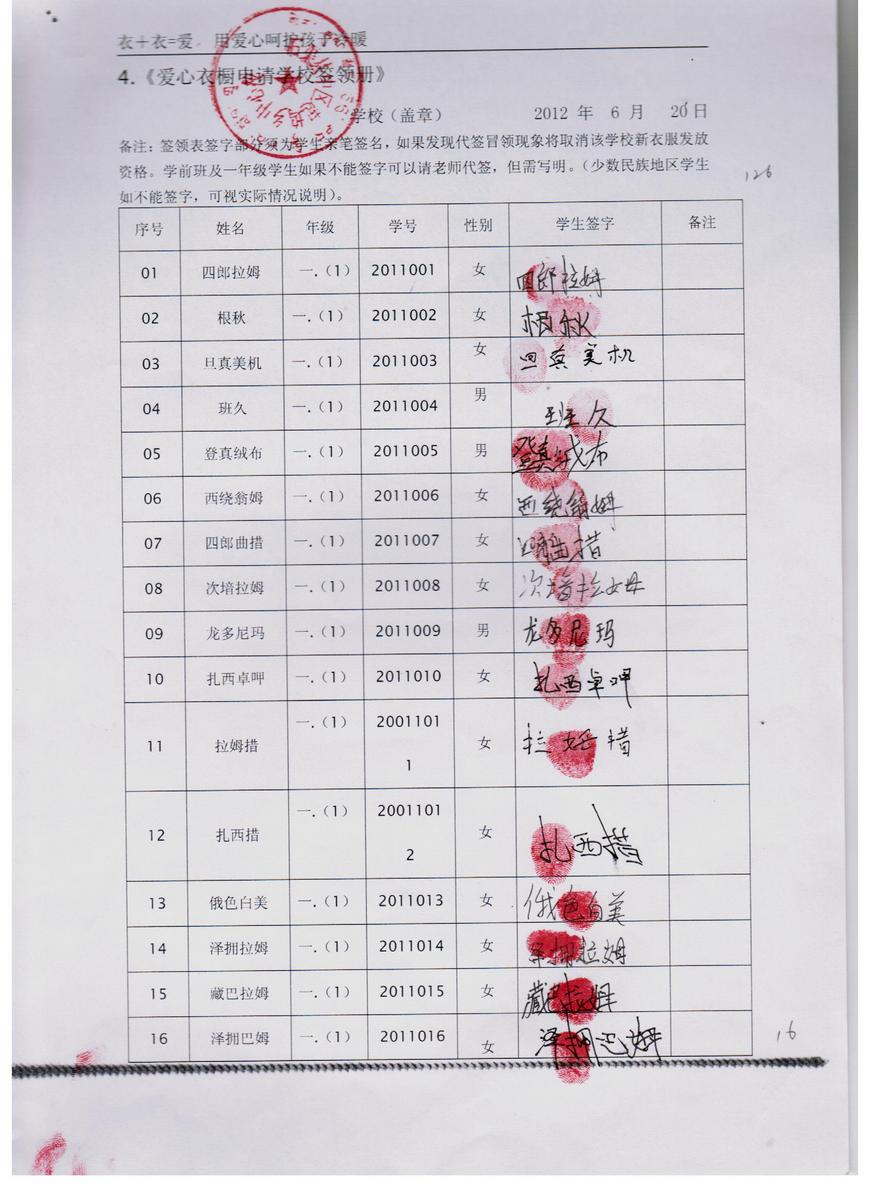 衣＋衣=爱，用爱心呵护孩子冷暖
4.《爱心衣橱申请学校签领册》
学校（盖章） 2012 年 6 月 20日
备注：签领表签字部分须为学生亲笔签名，如果发现代签冒领现象将取消该学校新衣服发放
资格。学前班及一年级学生如果不能签字可以请老师代签，但需写明。（少数民族地区学生
如不能签字，可视实际情况说明）。
126
序号 姓名 年级 学号 性别 学生签字 备注
01 四郎拉姆 一.（1） 2011001 女 四郎拉姆
02 根秋 一.（1） 2011002 女 根秋
03 旦真美机 一.（1） 2011003 女 旦真美机
04 班久 一.（1） 2011004 男 班久
05 登真绒布 一.（1） 2011005 男 登真绒布
06 西绕翁姆 一.（1） 2011006 女 西绕翁姆
07 四郎曲措 一.（1） 2011007 女 四郎曲措
08 次培拉姆 一.（1） 2011008 女 次培拉姆
09 龙多尼玛 一.（1） 2011009 男 龙多尼玛
10 扎西卓呷 一.（1） 2011010 女 扎西卓呷
11 拉姆措 一.（1） 20011011 女 拉姆措
12 扎西措 一.（1） 20011012 女 扎西措
13 俄色白美 一.（1） 2011013 女 俄色白美
14 泽拥拉姆 一.（1） 2011014 女 泽拥拉姆
15 藏巴拉姆 一.（1） 2011015 女 藏巴拉姆
16 泽拥巴姆 一.（1） 2011016 女 泽拥巴姆
16